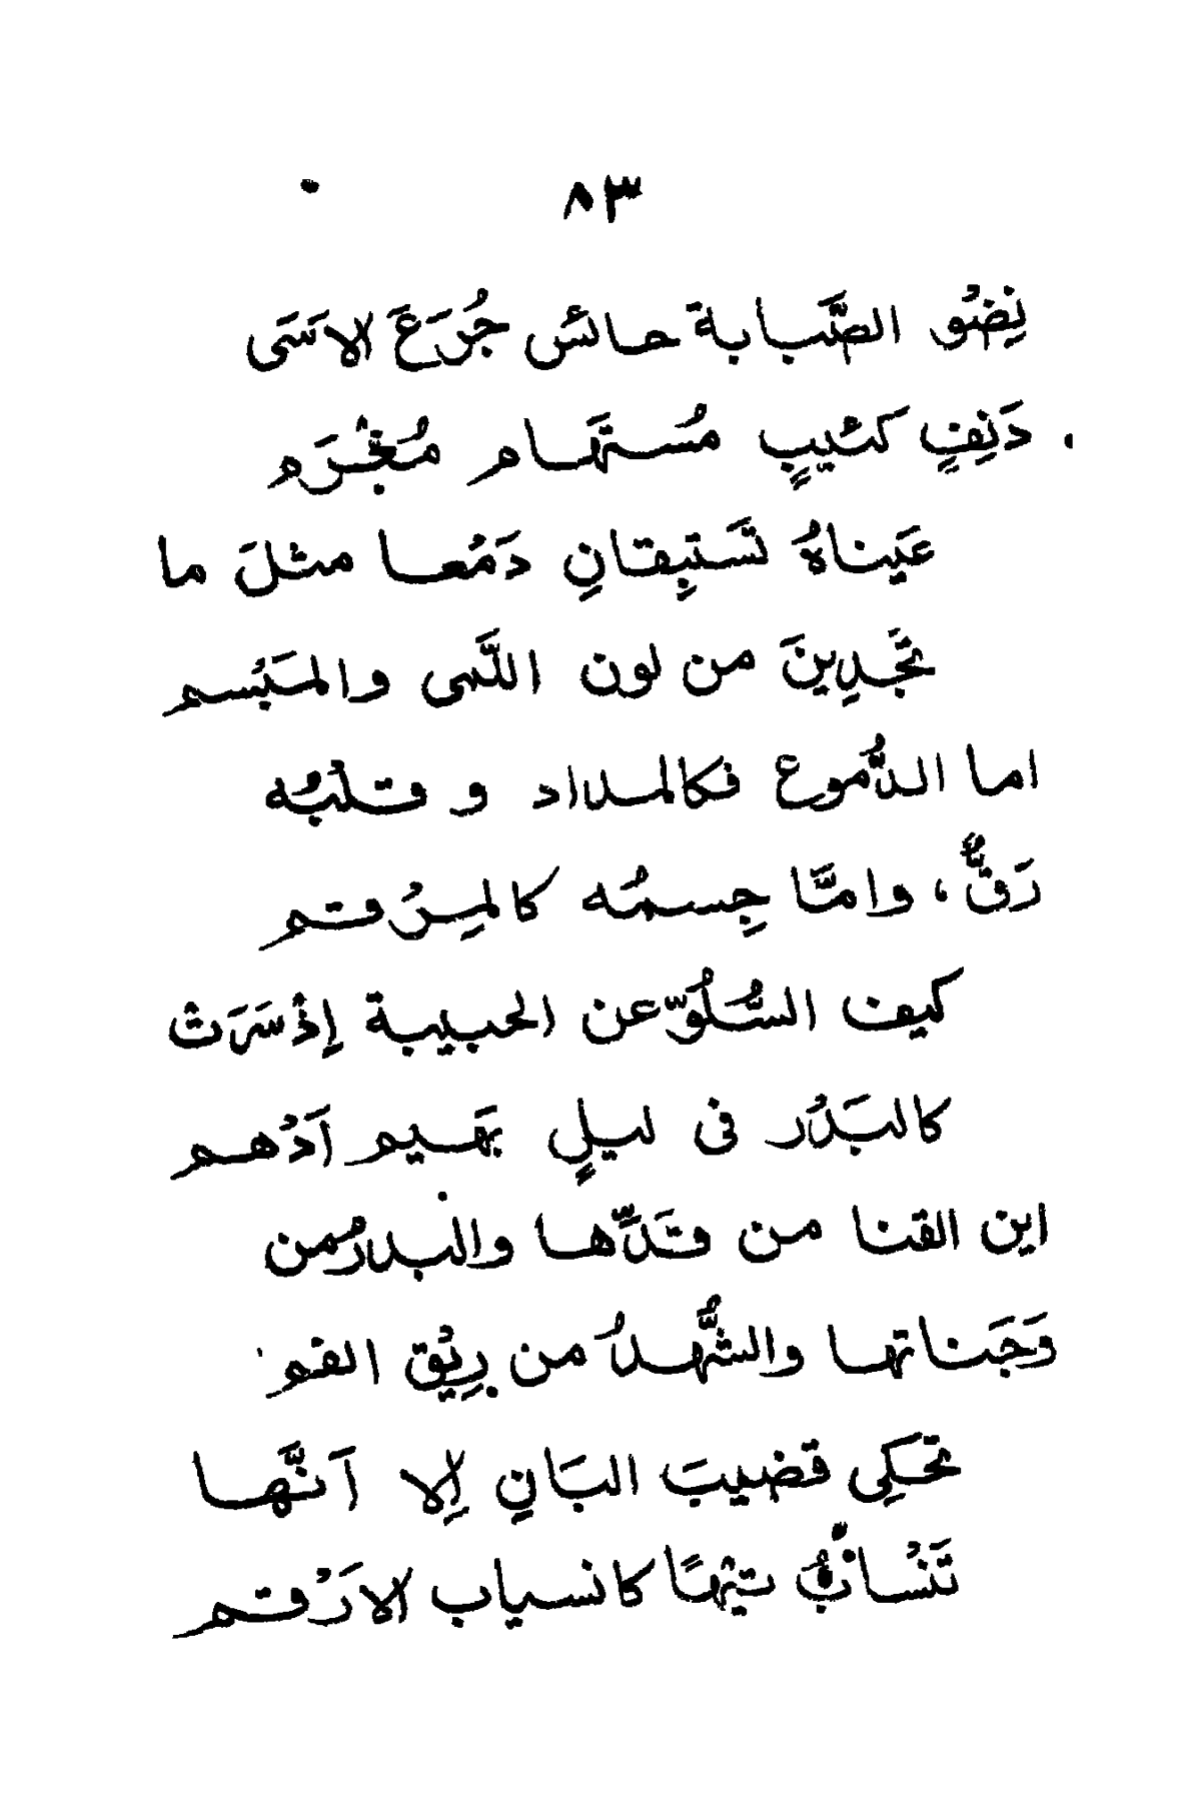 ٨٣
نِضْو الصَّبابة حائش جُرَعَ الاسَى
دَنِفٍ كئيبٍ مُستَهام مُغْرَم
عَيناهُ تَستبِقانِ دَمْعا مثلَ ما
تَجدِينَ من لون اللَّمى والمَبْسم
اما الدُّموع فكالمداد و قلبُه
رَقٌّ، وامَّا جِسمُه كالمِرْقم
كيف السُّلُوّ عن الحبيبة إذْ سَرَتْ
كالبَدْر فى ليلٍ بَهيم اَدْهم
اين القنا من قَدِّها والبدرُ من
وَجَناتها والشُّهدُ من رِيْق الفم
تحكِى قضيبَ البَانِ اِلا اَنَّها
تَنْسابُ تيْهًا كانسياب الارَقْم